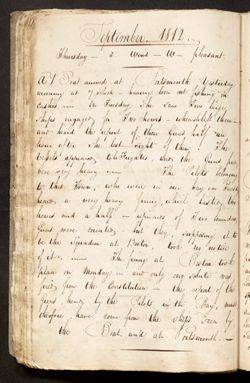 September. 1812.
Thursday - 3 Wind - W - pleasant
A Boat arrived at Portsmouth Yesterday
morning at 7 o'clock - having been out fishing
On Tuesday She saw Two large
Ships engaged for Two hours - when left them -
and heard the report of their Guns half an
hour after She lost sight of them. The
Vessels appeared to be Frigates, and the Guns fired
were very heavy. The Pilots belonging
to this Town, who were in our bay on Tuesday
heard a very heavy firing, which lasted two
hours and a half - upwards of Two hundred
Guns were counted - but they supposing it to
be the Squadron at Boston took no notice
of it. The firing at Boston took
place on Monday - and only one salute was
fired, from the Constitution - the report of the
Guns, heard by the Pilots in the Bay, must
therefore, have come from the Ships seen by
the Boat arr'd at Portsmouth.